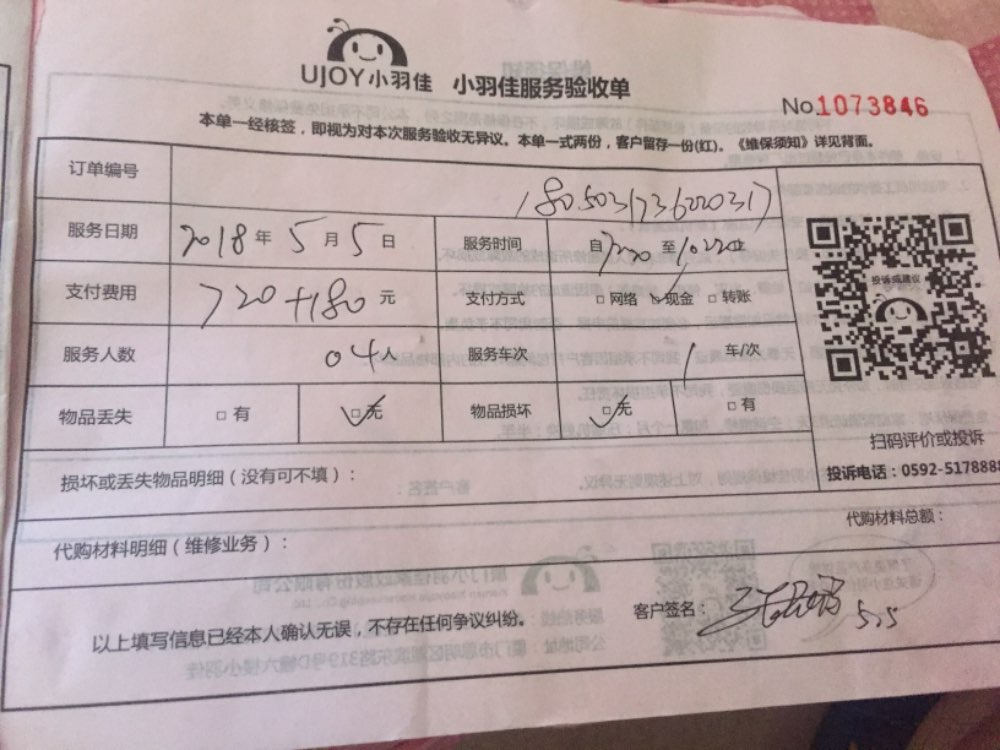 UJOY小羽佳 小羽佳服务验收单
No.1073846
本单一经核签,即视为对本次服务验收无异议。本单一式两份,客户留存一份(红)。《维保须知》详见背面。
订单编号 180503173620317
服务日期 2018年5月5日 服务时间 自 至 止
支付费用 720+180元 支付方式 □网络 ☑现金 □转账
投诉或建议
服务人数 04人 服务车次 1车/次
物品丢失 □有 ☑无 物品损坏 ☑无 □有
扫码评价或投诉
投诉电话:0592-5178888
损坏或丢失物品明细(没有可不填):
代购材料明细(维修业务): 代购材料总额:
以上填写信息已经本人确认无误,不存在任何争议纠纷。 客户签名: 5.5